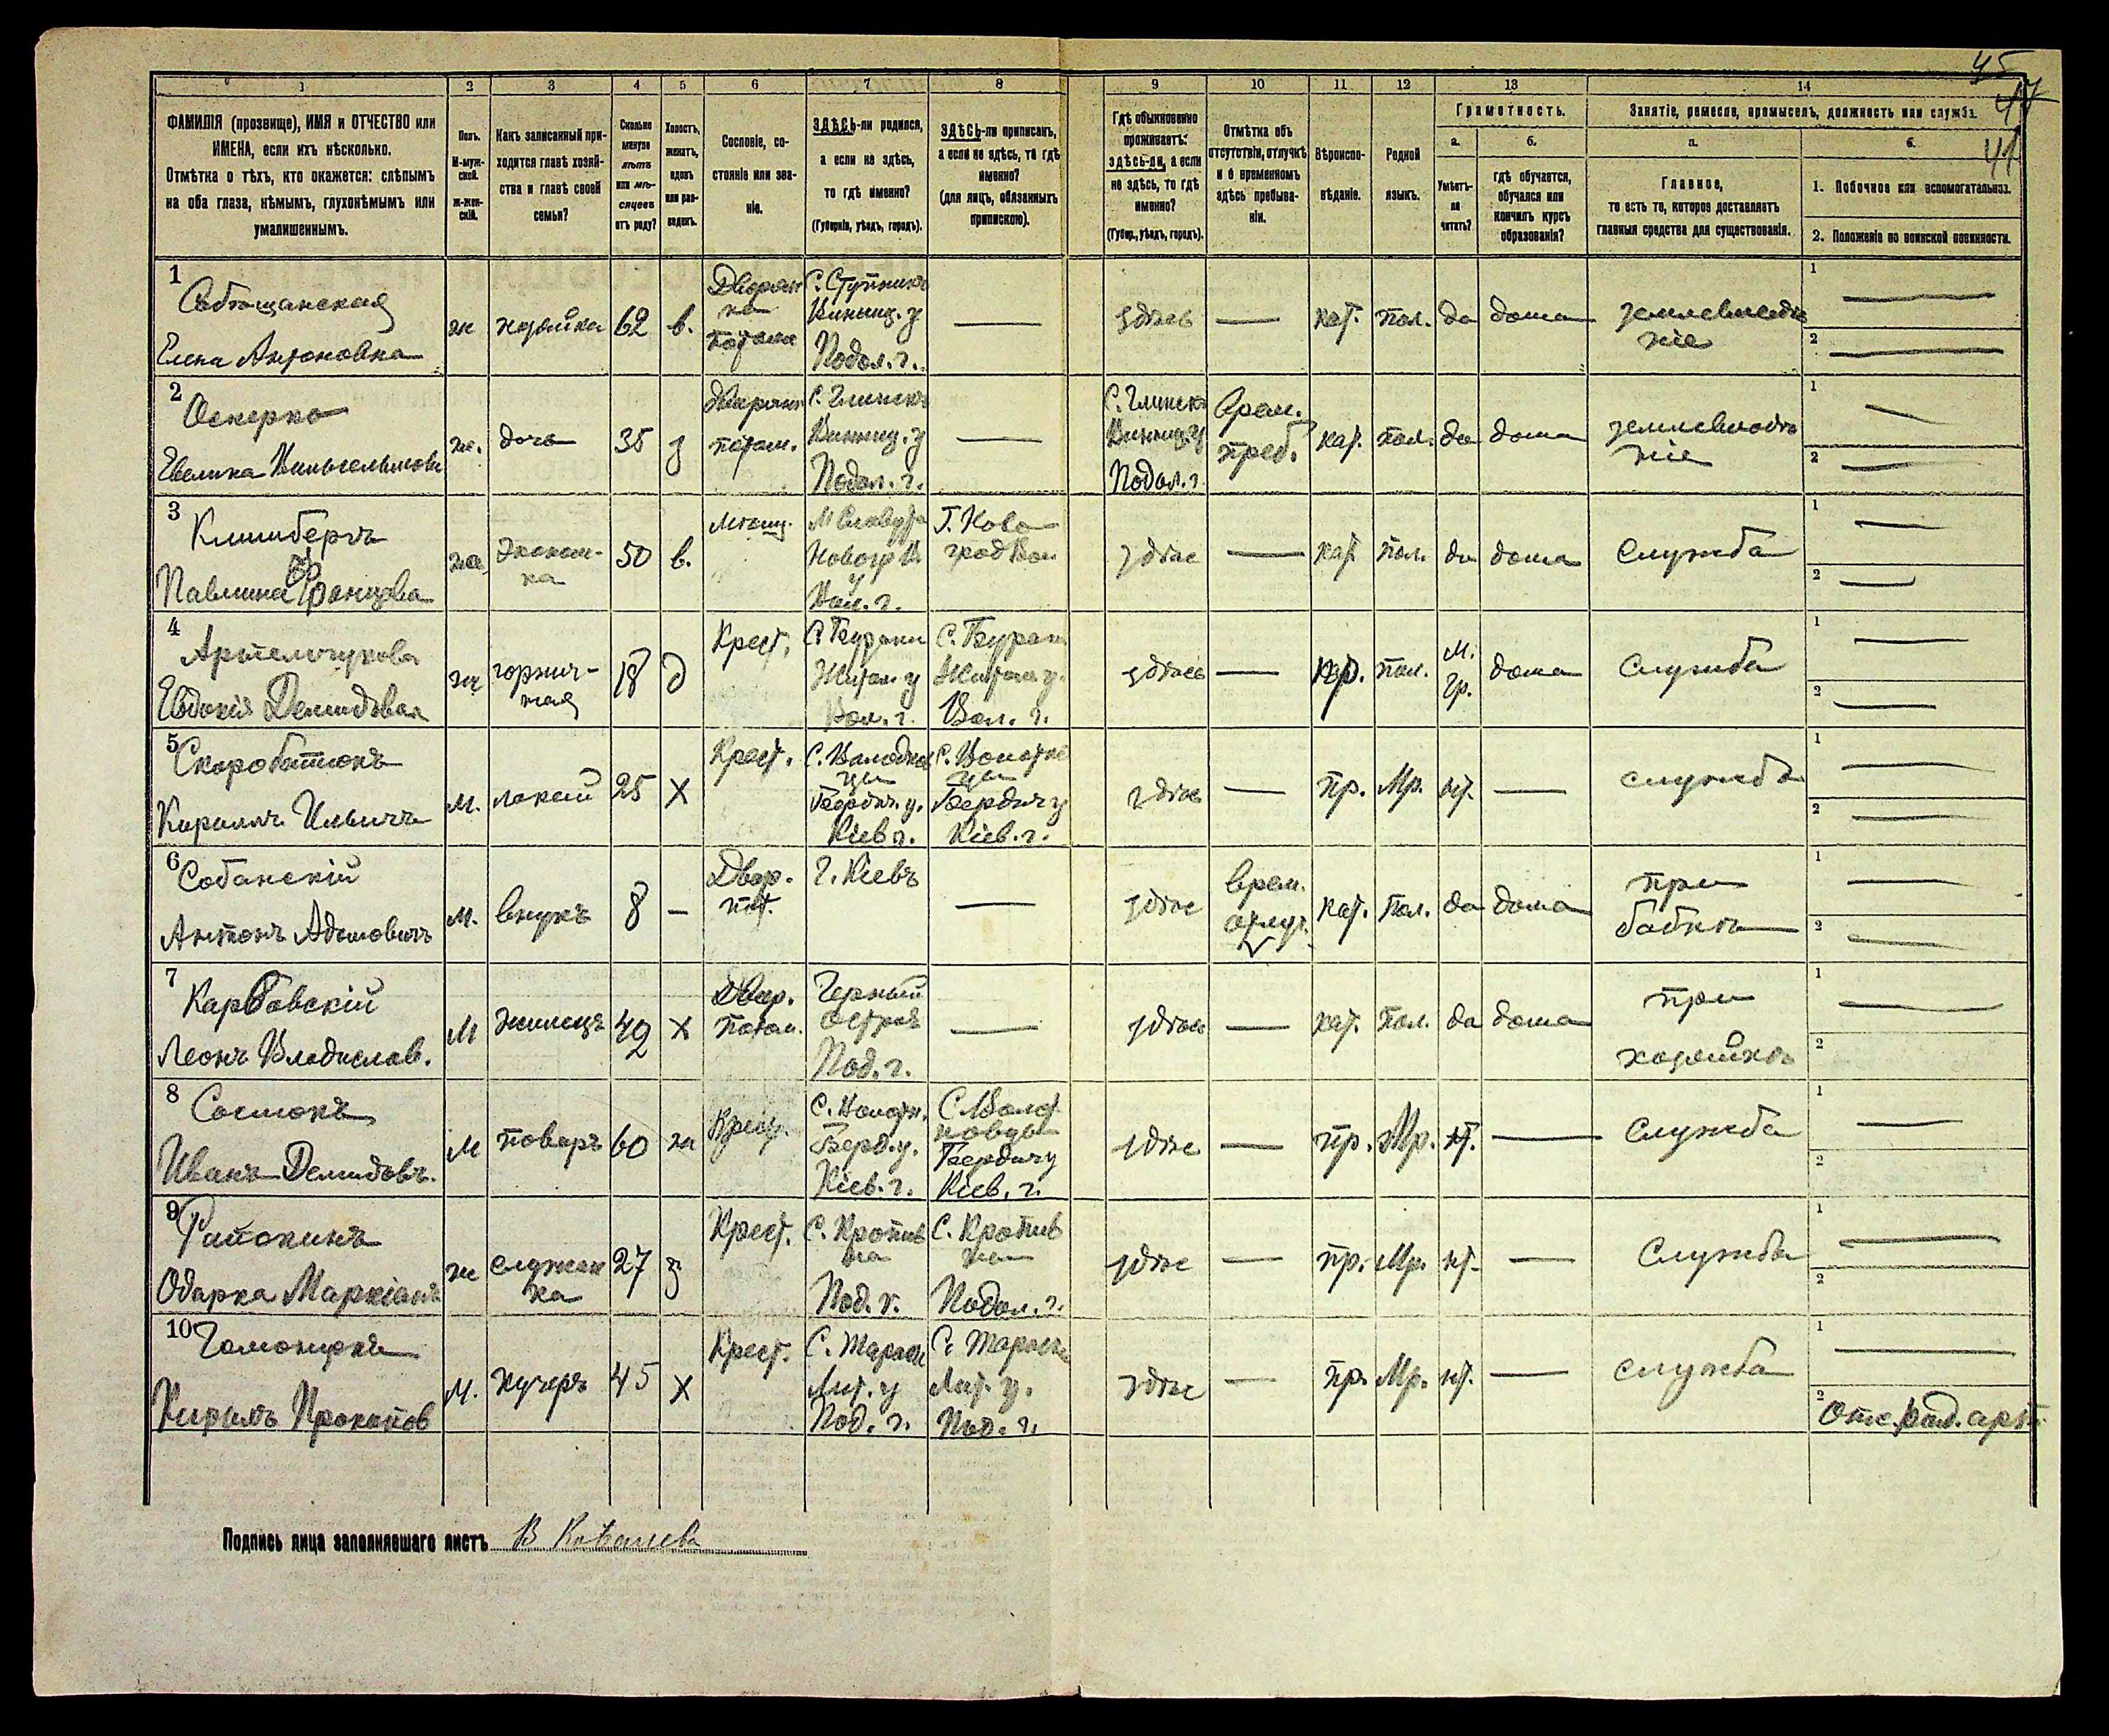 45
47
41
1 2 3 4 5 6 7 8 9 10 11 12 13 14
ФАМИЛІЯ (прозвище), ИМЯ и ОТЧЕСТВО или
ИМЕНА, если ихъ нѣсколько.
Отмѣтка о тѣхъ, кто окажется: слѣпымъ
на оба глаза, нѣмымъ, глухонѣмымъ или
умалишеннымъ.
Полъ.
М-муж-
ской.
ж-жен-
скій.
Какъ записанный при-
ходится главѣ хозяй-
ства и главѣ своей
семьи?
Сколько
минуло
лѣтъ
или мѣ-
сяцевъ
отъ роду?
Холостъ,
женатъ,
вдовъ
или раз-
веденъ.
Сословіе, со-
стояніе или зва-
ніе.
ЗДѢСЬ-ли родился,
а если не здѣсь,
то гдѣ именно?
(Губернія, уѣздъ, городъ).
ЗДѢСЬ-ли приписанъ,
а если не здѣсь, то гдѣ
именно?
(для лицъ, обязанныхъ
припискою).
Гдѣ обыкновенно
проживаетъ:
здѣсь-ли, а если
не здѣсь, то гдѣ
именно?
(Губер., уѣздъ, городъ).
Отмѣтка объ
отсутствіи, отлучкѣ
и о временномъ
здѣсь пребыва-
ніи.
Вѣроиспо-
вѣданіе.
Родной
языкъ.
Грамотность.
а.
Умѣетъ-
ли
читать?
б.
гдѣ обучается,
обучался или
кончилъ курсъ
образованія?
Занятіе, ремесло, промыселъ, должность или служба.
а.
Главное,
то есть то, которое доставляетъ
главныя средства для существованія.
б.
1. Побочное или вспомогательное.
2. Положеніе по воинской повинности.
1
Елена Антоновна
ж
хозяйка
62
в.
Дворян
ка
Винниц. у
Подол. г.
здѣсь
кат.
пол.
да
дома
землевладѣ
ніе
1
2
2
Оскерко
Евелина Вильгельмов
ж.
дочь
35
з
потом.
С. Глинскъ
Винниц. у
Подол. г.
С. Глинскъ
Винниц. у
Подол. г.
Врем.
преб.
кат.
пол.
да
дома
землевладѣ
ніе
1
2
3
Павлина
ж
эконом-
ка
50
в.
Мѣщ.
Вол. г.
здѣс
кат.
пол.
да
дома
служба
1
2
4
Евдокія Демидовая
ж
горнич-
ная
18
д
Крест.
Житом. у
Вол. г.
Житом. у.
Вол. г.
здѣсь
пол.
м.
гр.
дома
служба
1
2
5
Скоробатюкъ
Кириллъ Ильичъ
м.
лакей
25
х
Крест.
Бердич. у.
Кіев г.
Бердич у
Кіев. г.
здѣс
пр.
Мр.
нт.
служба
1
2
6
Собанскій
Антонъ Адамовичъ
м.
внукъ
8
Двор.
пот.
г. Кіевъ
здѣс
врем.
отлуч.
кат.
пол.
да
дома
при
бабкѣ
1
2
7
Карбовскій
Леонъ Владислав.
м
жилецъ
49
х
Двор.
потом.
Черный
островъ
Под. г.
здѣсь
кат.
пол.
да
дома
при
хозяйкѣ
1
2
8
Иванъ Демидовъ.
м
поваръ
60
ж
Берд. у.
Кіев. г.
Бердич у
Кіев. г.
здѣс
пр.
Мр.
нт.
служба
1
2
9
Одарка Маркіан
ж
служан
ка
27
з
Крест.
С. Кропив
на
Под. г.
С. Кропив
на
Подол. г.
здѣс
пр.
Мр.
нт.
служба
1
2
10
Кирилъ Прокопов
м.
кучеръ
45
х
Крест.
Лит. у
Под. г.
Лит. у.
Под. г.
здѣс
пр.
Мр.
нт.
служба
1
2
Подпись лица заполнявшаго листъ